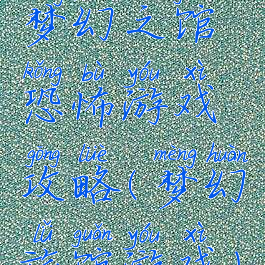 梦幻之馆
kǒng bù yóu xì
恐怖游戏
gōng lüè mèng huàn
攻略(梦幻
lǚ guǎn yóu xì
旅馆游戏)